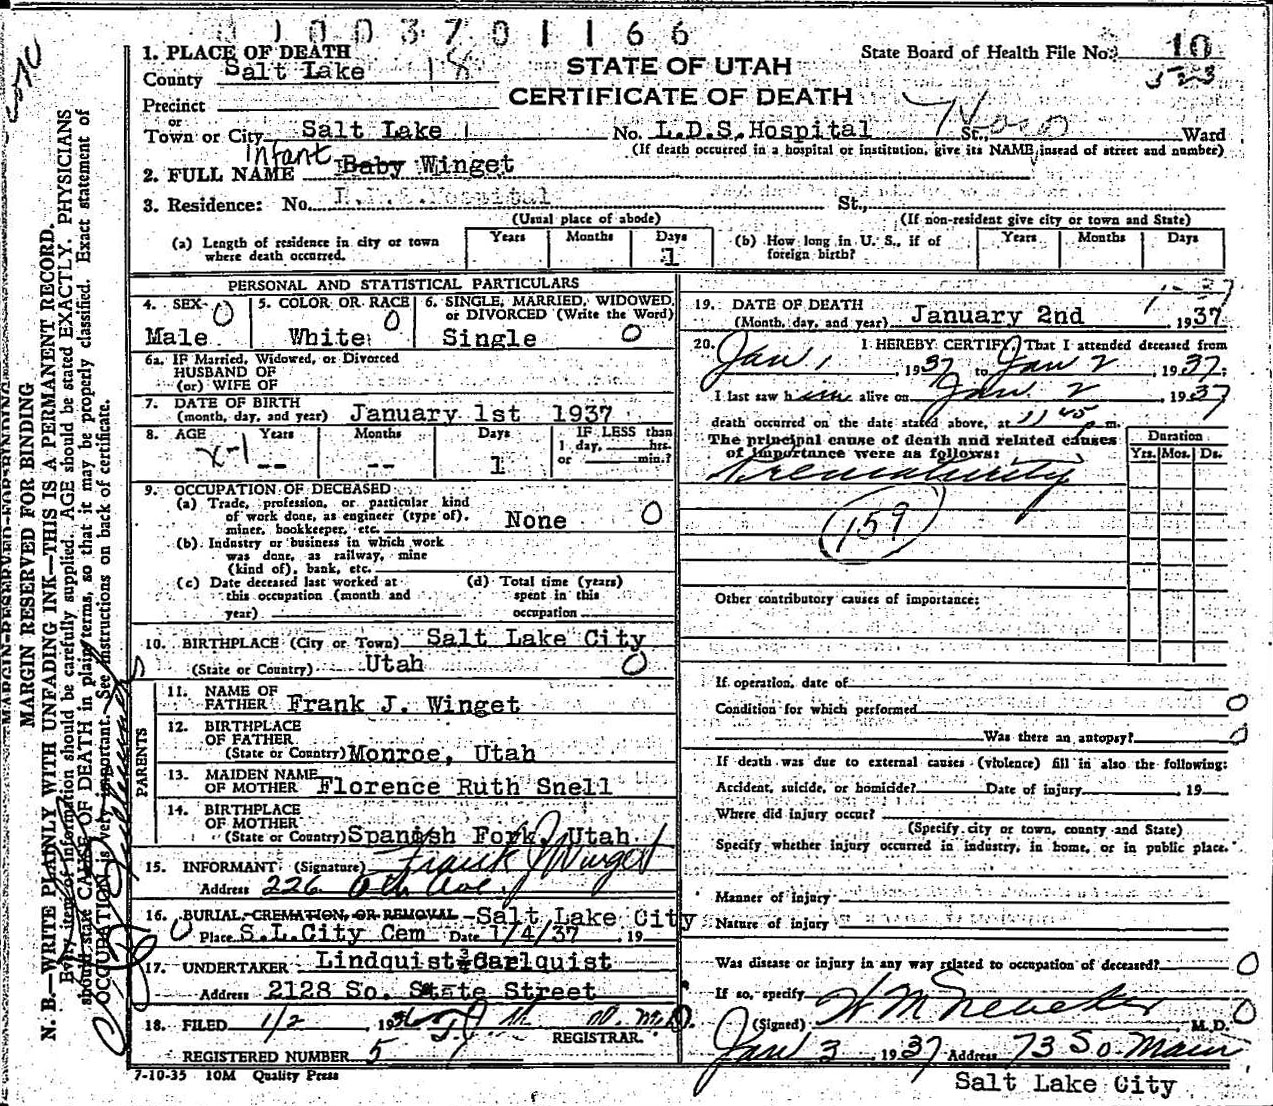 0 1 0 0 3 7 0 1 1 6 6
1. PLACE OF DEATH
County Salt Lake 18
STATE OF UTAH
State Board of Health File No. 10
523
Precinct
or
CERTIFICATE OF DEATH
Town or City Salt Lake No. L.D.S. Hospital St., Ward
(If death occurred in a hospital or institution, give its NAME insead of street and number)
Infant
2. FULL NAME Baby Winget
3. Residence: No. L.D.S. Hospital St.,
(Usual place of abode) (If non-resident give city or town and State)
(a) Length of residence in city or town where death occurred. Years Months Days 1
(b) How long in U. S., if of foreign birth? Years Months Days
PERSONAL AND STATISTICAL PARTICULARS
4. SEX 0 5. COLOR OR RACE 0 6. SINGLE, MARRIED, WIDOWED, or DIVORCED (Write the Word)
Male White Single 0
6a. IF Married, Widowed, or Divorced
HUSBAND OF
(or) WIFE OF
7. DATE OF BIRTH
(month, day, and year) January 1st 1937
8. AGE Years Months Days IF LESS than
1 day, hrs.
-- -- 1 or min.?
9. OCCUPATION OF DECEASED
(a) Trade, profession, or particular kind
of work done, as engineer (type of),
miner, bookkeeper, etc. None 0
(b) Industry or business in which work
was done, as railway, mine
(kind of), bank, etc.
(c) Date deceased last worked at
this occupation (month and
year)
(d) Total time (years)
spent in this
occupation
10. BIRTHPLACE (City or Town) Salt Lake City
(State or Country) Utah 0
PARENTS
11. NAME OF
FATHER Frank J. Winget
12. BIRTHPLACE
OF FATHER
(State or Country) Monroe, Utah
13. MAIDEN NAME
OF MOTHER Florence Ruth Snell
14. BIRTHPLACE
OF MOTHER
(State or Country) Spanish Fork, Utah
15. INFORMANT (Signature) Frank J Winget
Address 226 Ave.
16. BURIAL, CREMATION, OR REMOVAL Salt Lake City
Place S.L.City Cem Date 1/4/37, 19
17. UNDERTAKER Lindquist & Carlquist
Address 2128 So. State Street
18. FILED 1/2, 19
REGISTRAR.
REGISTERED NUMBER 5
7-10-35 10M Quality Press
19. DATE OF DEATH
(Month, day, and year) January 2nd, 1937
20. I HEREBY CERTIFY, That I attended deceased from
Jan 1, 1937 to Jan 2, 1937;
I last saw him alive on Jan. 2, 1937
death occurred on the date stated above, at 11 45 p m.
The principal cause of death and related causes
of importance were as follows:
Duration
Yrs. Mos. Ds.
Prematurity
159
Other contributory causes of importance:
If operation, date of
Condition for which performed 0
Was there an autopsy? 0
If death was due to external causes (violence) fill in also the following:
Accident, suicide, or homicide? Date of injury, 19
Where did injury occur?
(Specify city or town, county and State)
Specify whether injury occurred in industry, in home, or in public place.
Manner of injury
Nature of injury
Was disease or injury in any way related to occupation of deceased? 0
If so, specify
(Signed) M.D. 0
Jan 3, 1937 Address 73 So. Main
Salt Lake City
MARGIN RESERVED FOR BINDING
N. B.—WRITE PLAINLY WITH UNFADING INK—THIS IS A PERMANENT RECORD.
Every item of information should be carefully supplied. AGE should be stated EXACTLY. PHYSICIANS
should state CAUSE OF DEATH in plain terms, so that it may be properly classified. Exact statement of
OCCUPATION is very important. See instructions on back of certificate.